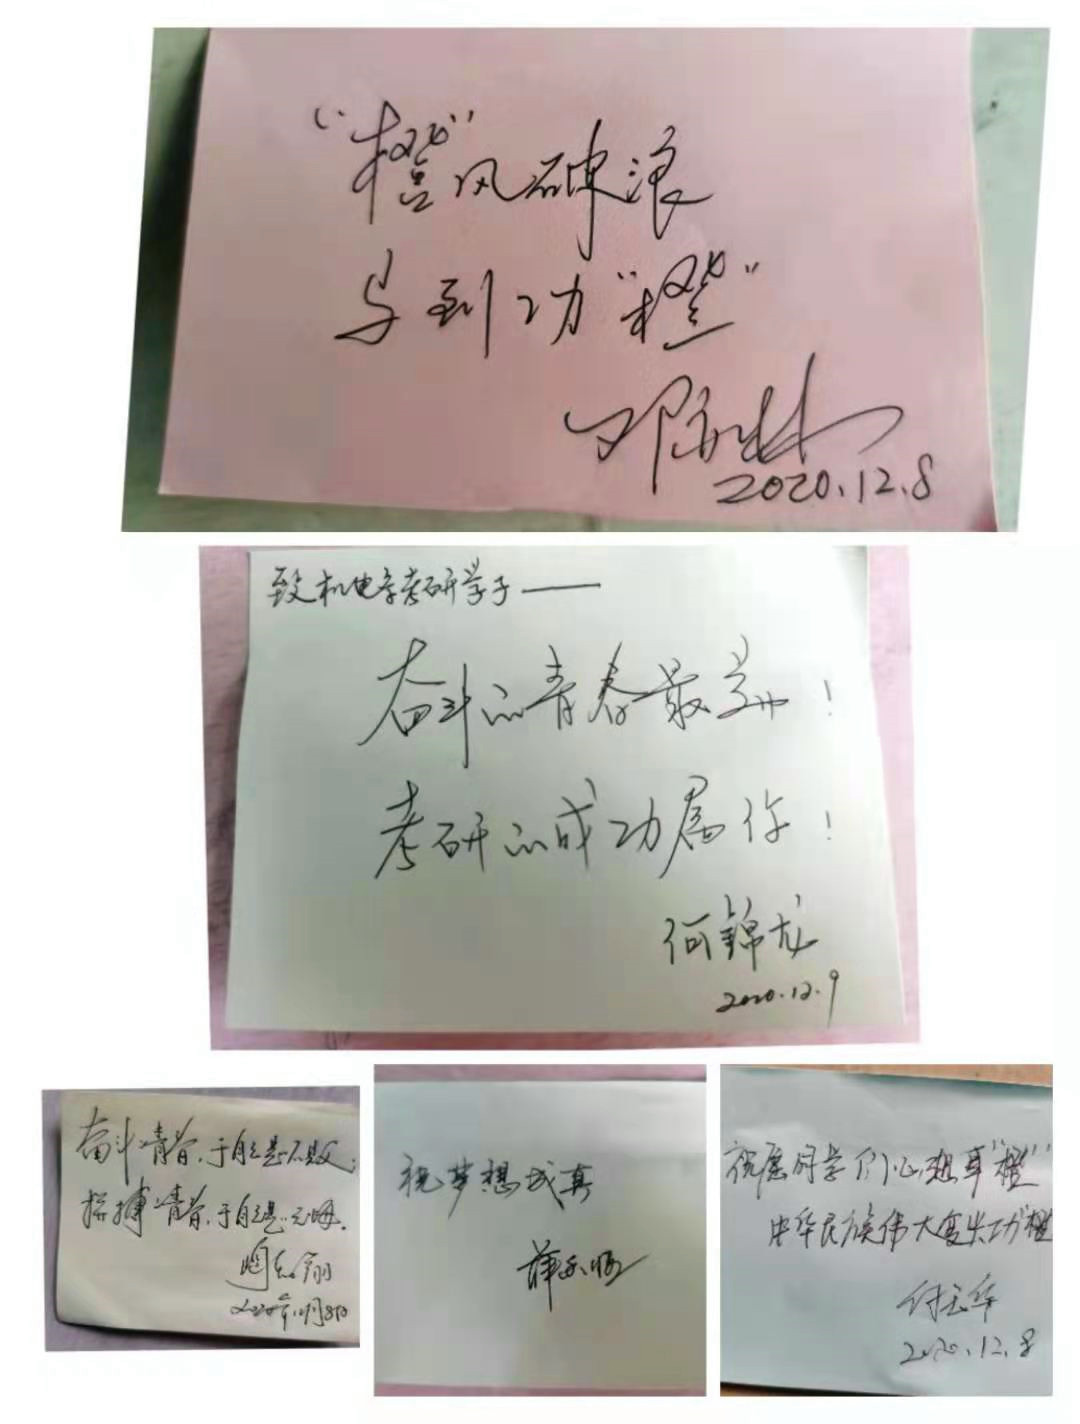 “橙”风破浪
马到功“橙”
2020.12.8
致机电学考研学子——
奋斗的青春最美！
考研的成功属你！
何锦龙
2020.12.9
奋斗之青春，于自己是不败；
拼搏之青春，于自己是无悔。
2020年12月8日
祝梦想成真
祝愿同学们心想事“橙”
中华民族伟大复兴功“橙
付云华
2020.12.8